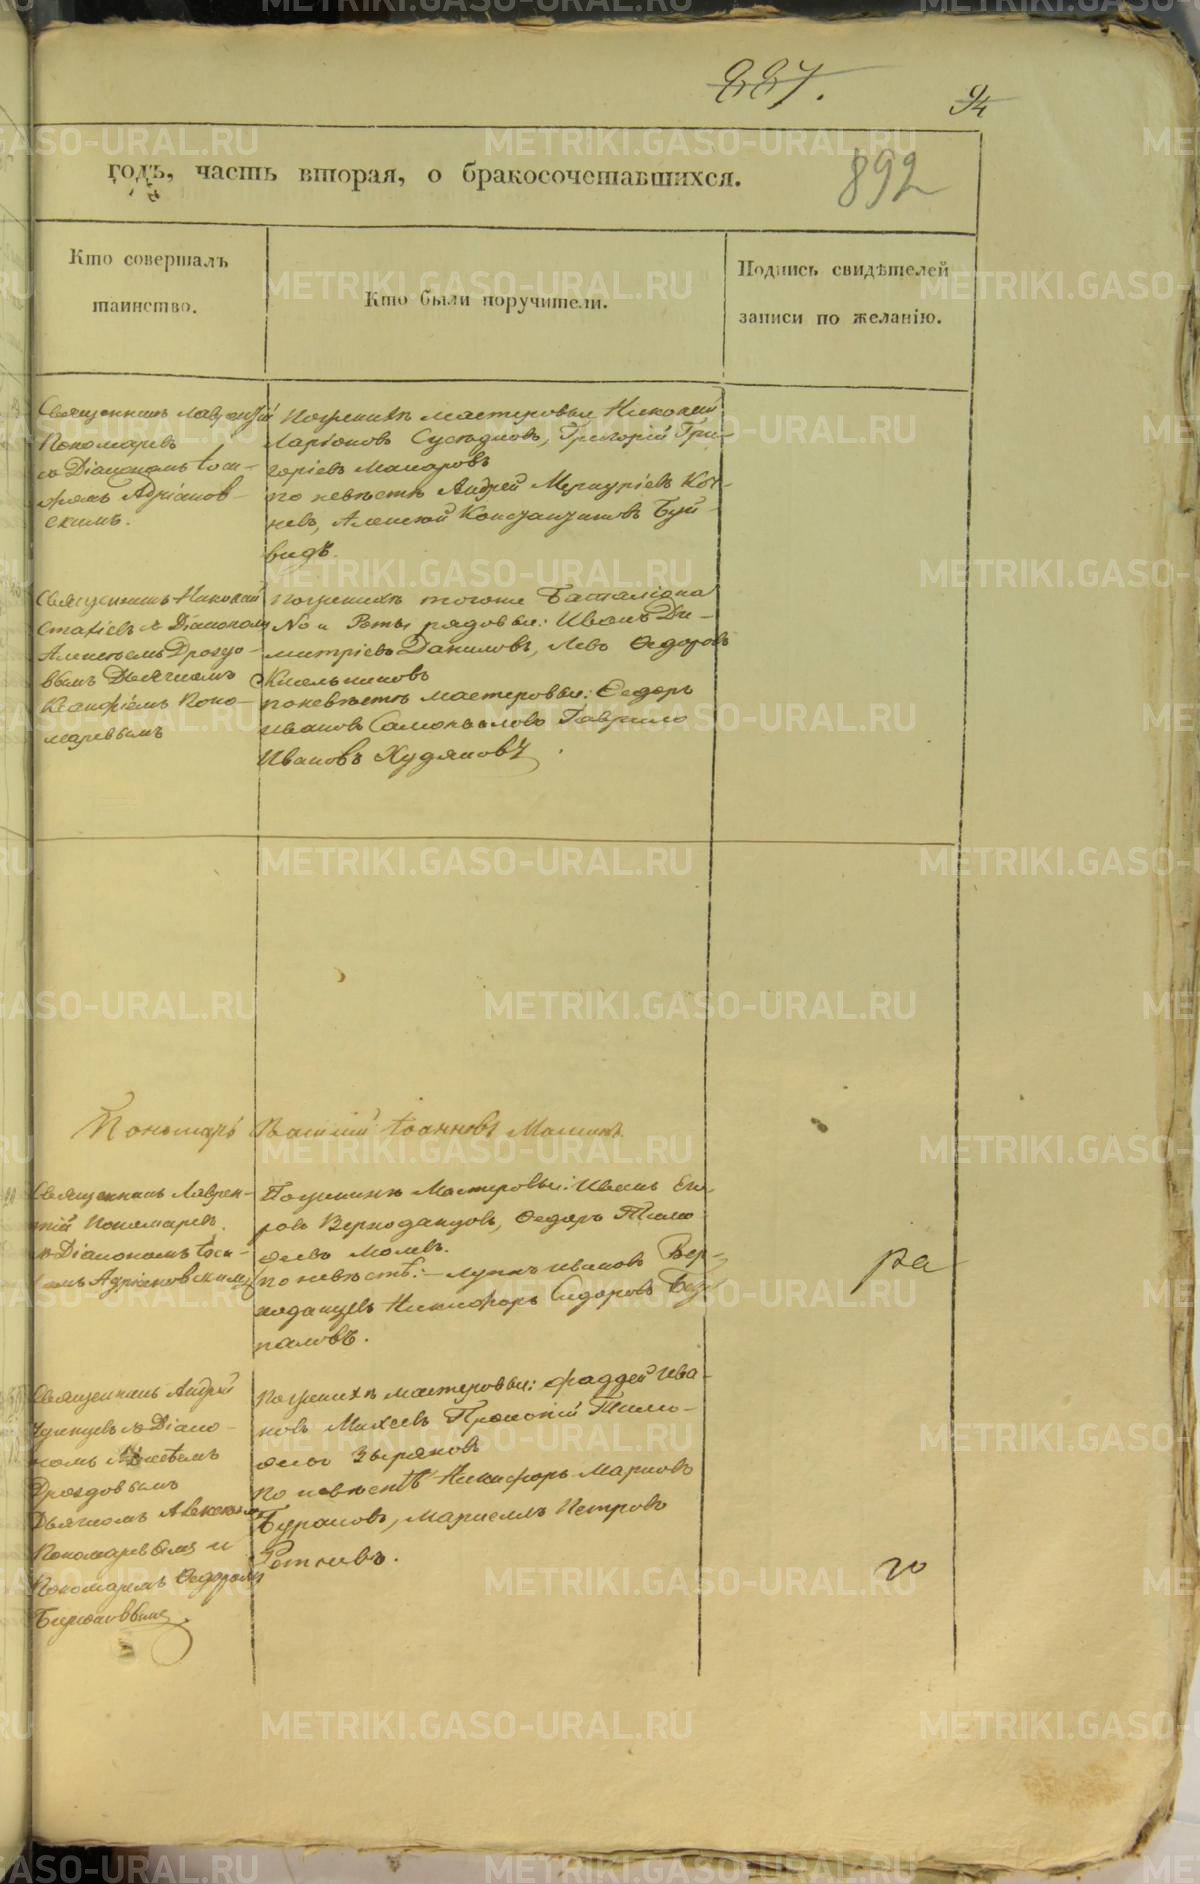 887.
94
892
годъ, часть вторая, о бракосочетавшихся.
Кто совершалъ
таинство.
Кто были поручители.
Подпись свидѣтелей
записи по желанію.
Священникъ Лаврентій
Пономаревъ
съ Діакономъ Іоси-
фомъ Адріанов-
скимъ.
По женихѣ мастеровые Николай
Ларіоновъ Сусѣдковъ, Григорій Гри-
горіевъ Макаровъ
по невѣстѣ Андрей Меркуріевъ Коч-
невъ, Алексѣй Константиновъ Буй-
видъ.
Священникъ Николай
съ Діакономъ
Алексѣемъ Дрозdо-
вымъ Дьячкомъ
Ксанфіемъ Поно-
маревымъ
По женихѣ тогоже Баталіона
№ Роты рядовые: Иванъ Ди-
митріевъ Даниловъ, Левъ Ѳедоровъ
по невѣстѣ мастеровые: Ѳедоръ
Ивановъ Самохваловъ Гаврило
Ивановъ Худяковъ
Пономарь Василій Іоанновъ
Священникъ Лаврен-
тій Пономаревъ
съ Діакономъ Іоси-
фомъ Адріановскимъ
По женихѣ Мастеровые: Иванъ Его-
ровъ Верходанцовъ, Ѳедоръ Тимо
ѳеевъ
по невѣстѣ: Лука Ивановъ Вер-
ходанцевъ Никифоръ Сидоровъ Без-
паловъ.
ра
Священникъ Андрей
съ Діако-
номъ Алексѣемъ
Дроздовымъ
Дьячкомъ Алексѣемъ
Пономаревымъ и
Пономаремъ Ѳедоромъ
Бирюковымъ
По женихѣ мастеровые: Фаддей Ива-
новъ Михеевъ Прокопій Тимо-
ѳеевъ Зыряновъ
По невѣстѣ Никифоръ Марковъ
Бураковъ, Маркеллъ Петровъ
го